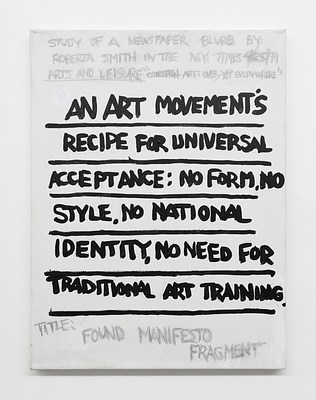 STUDY OF A NEWSPAPER BLURB BY
ROBERTA SMITH IN THE N.Y. TIMES 4/25/99
ARTS AND LEISURE "CONCEPTUAL ART: OVER, YET EVERYWHERE"
AN ART MOVEMENT'S
RECIPE FOR UNIVERSAL
ACCEPTANCE: NO FORM, NO
STYLE, NO NATIONAL
IDENTITY, NO NEED FOR
TRADITIONAL ART TRAINING.
TITLE:
FOUND MANIFESTO
FRAGMENT